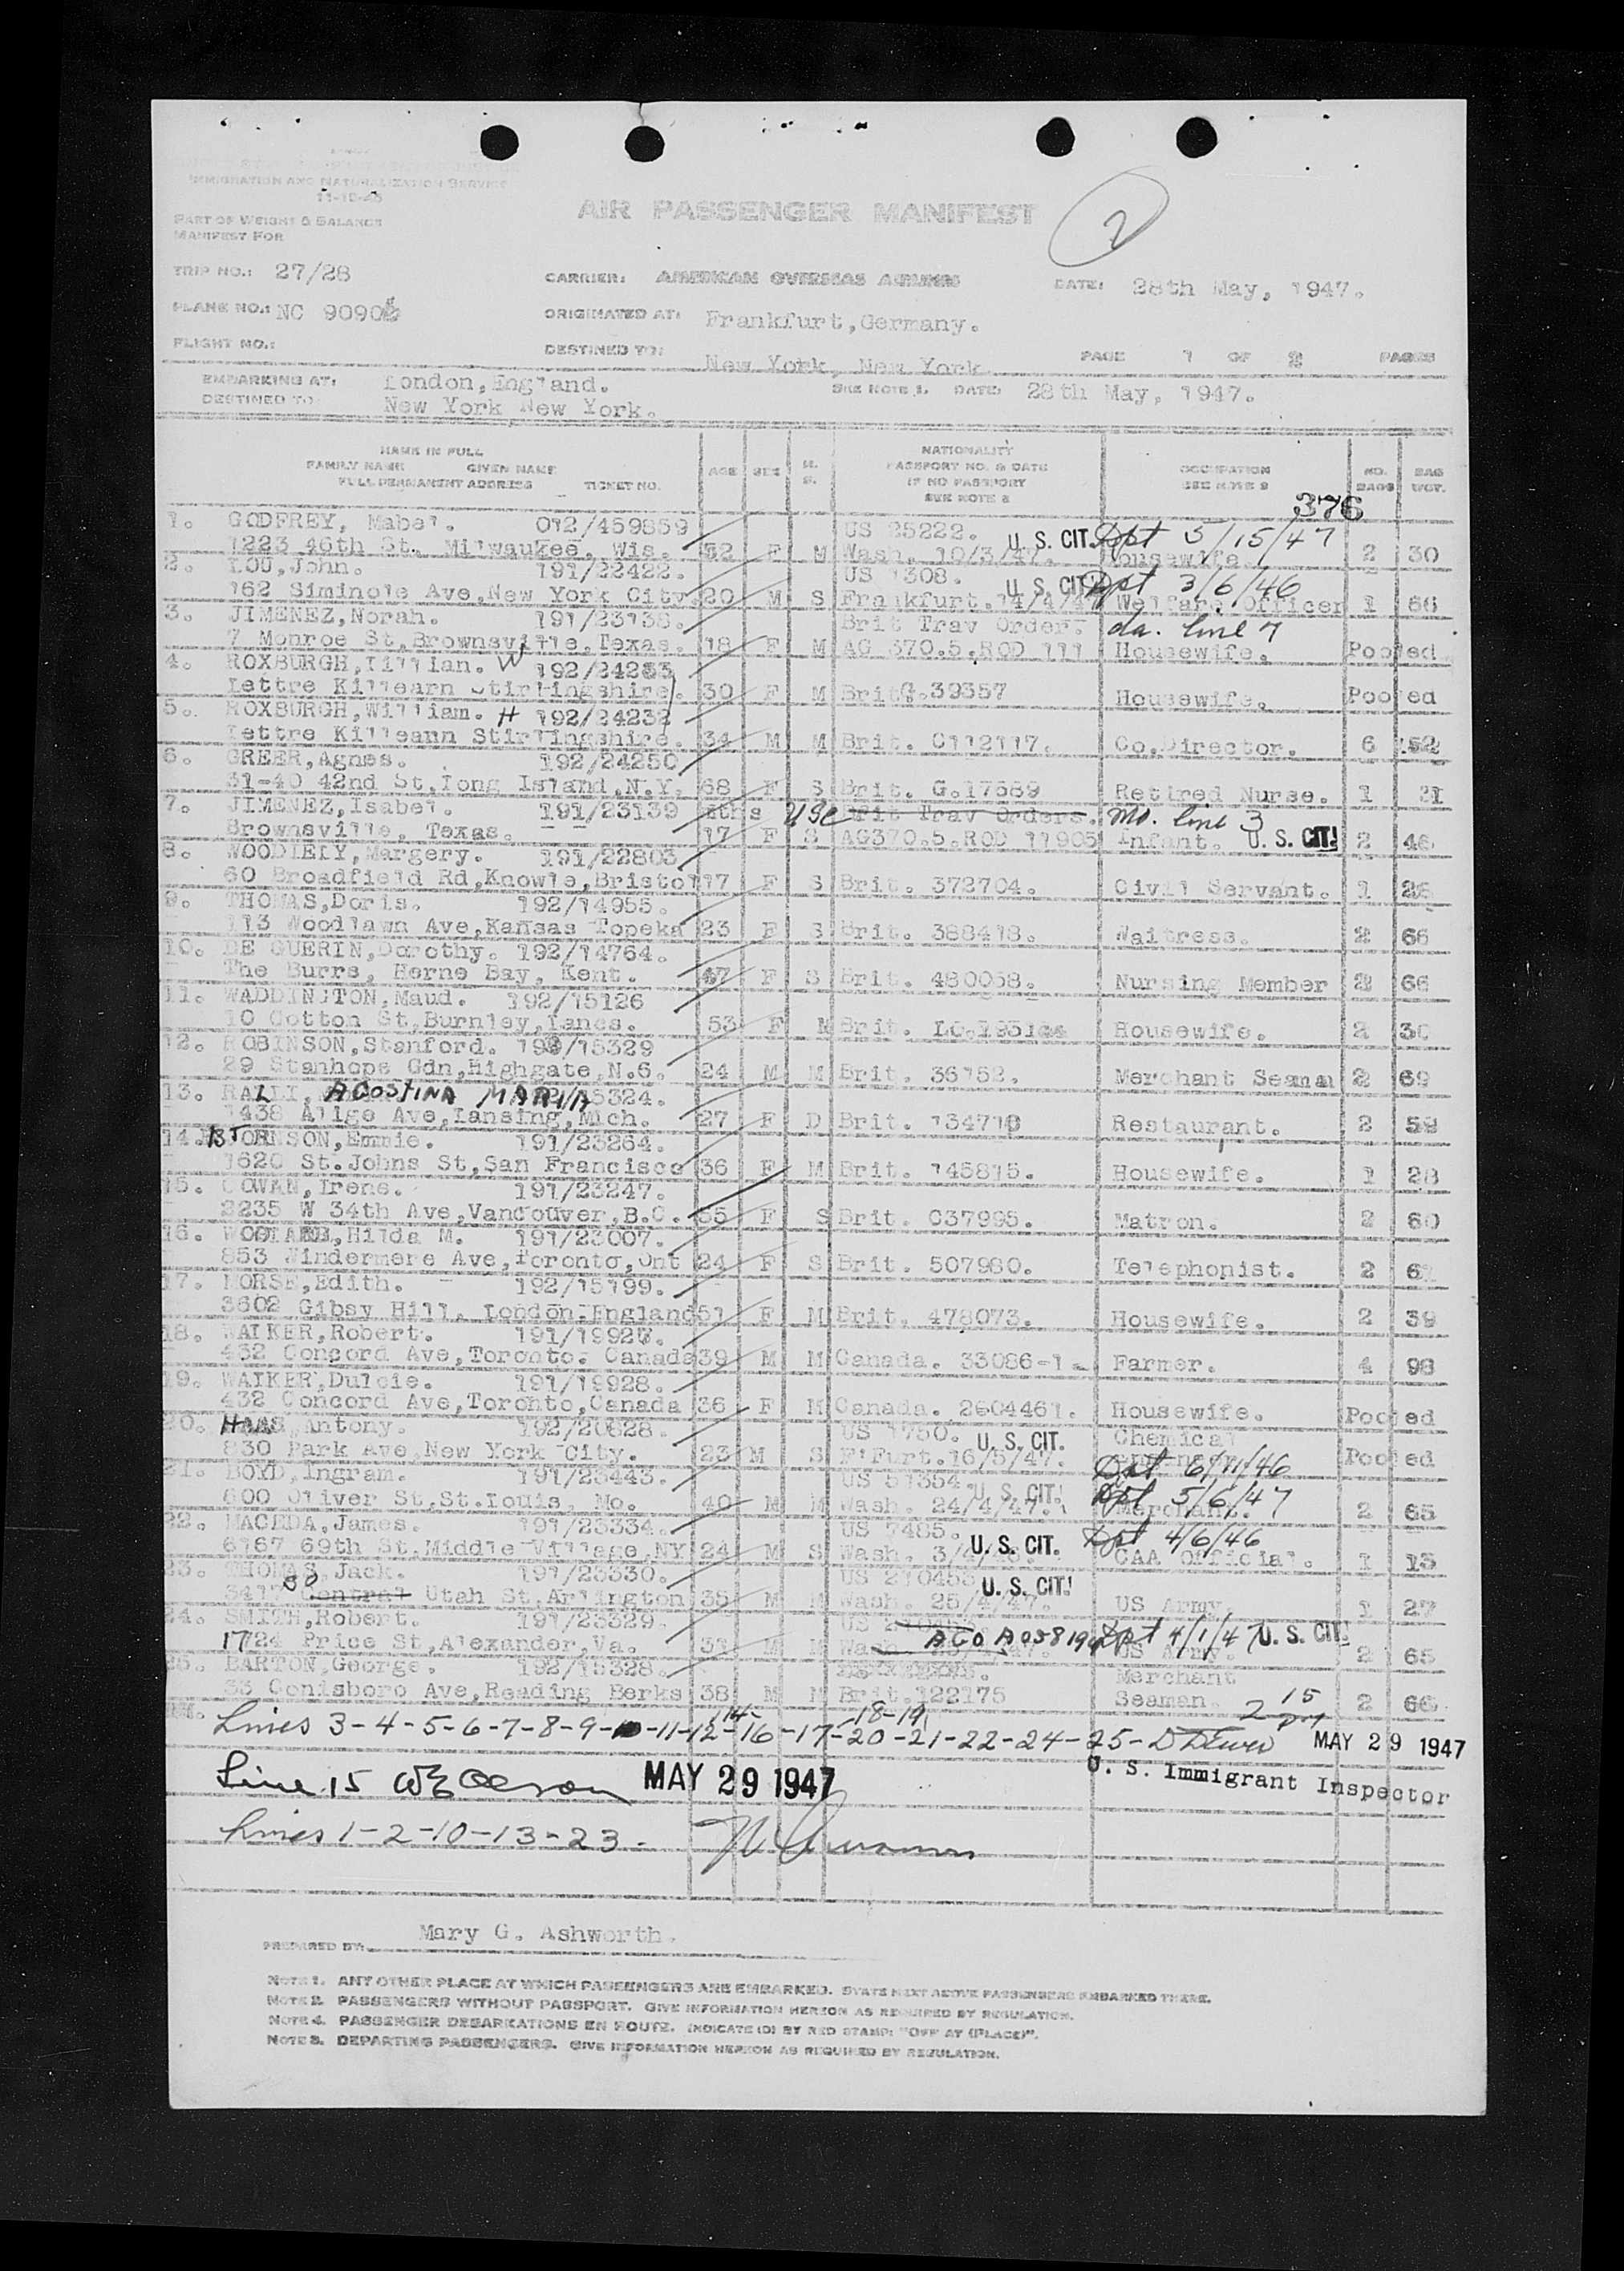 IMMIGRATION AND NATURALIZATION SERVICE
11-10-45
PART OF WEIGHT & BALANCE
MANIFEST FOR
AIR PASSENGER MANIFEST
2
TRIP NO.: 27/28
CARRIER: AMERICAN OVERSEAS AIRLINES
DATE: 28th May, 1947.
PLANE NO.: NC 9090
ORIGINATED AT: Frankfurt, Germany.
FLIGHT NO.:
DESTINED TO: New York, New York
PAGE 1 OF 2 PAGES
EMBARKING AT: London, England.
SEE NOTE 1. DATE: 28th May, 1947.
DESTINED TO: New York New York.
NAME IN FULL
FAMILY NAME GIVEN NAME
FULL PERMANENT ADDRESS TICKET NO.
AGE SEX M. S.
NATIONALITY
PASSPORT NO. & DATE
IF NO PASSPORT
SEE NOTE 2
OCCUPATION
SEE NOTE 2
NO. BAGS
BAG WGT.
376
1. GODFREY, Mabel. 012/459859 US 25222. U. S. CIT. Dpt 5/15/47
1223 46th St. Milwaukee, Wis. 52 F M Wash. 10/3/47. Housewife. 2 30
2. LOU, John. 191/22422. US 1308. U. S. CIT. Dpt 3/6/46
162 Siminole Ave, New York City. 20 M S Frankfurt. 14/4/47 Welfare Officer 1 66
3. JIMENEZ, Norah. 191/23138. Brit Trav Order. da. line 7
7 Monroe St, Brownsville, Texas. 18 F M AG 370.5. ROD 111 Housewife. Pooled
4. ROXBURGH, Lillian. W 192/24233
Lettre Killearn Stirlingshire. 30 F M Brit G.39357 Housewife. Pooled
5. ROXBURGH, William. H 192/24232
Lettre Killeann Stirlingshire. 34 M M Brit. C112117. Co, Director. 6 152
6. GREER, Agnes. 192/24250
31-40 42nd St, Long Island, N.Y. 68 F S Brit. G.17689 Retired Nurse. 1 31
7. JIMENEZ, Isabel. 191/23139 mths USC Brit Trav Orders. Mo. line 3
Brownsville, Texas. 17 F S AG370.5. ROD 11905 Infant. U. S. CIT. 2 46
8. WOODLELY, Margery. 191/22803
60 Broadfield Rd, Knowle, Bristol 17 F S Brit. 372704. Civil Servant. 1 28
9. THOMAS, Doris. 192/14955.
113 Woodlawn Ave, Kansas Topeka 23 F S Brit. 388418. Waitress. 2 66
10. DE GUERIN, Dorothy. 192/14764.
The Burrs, Herne Bay, Kent. 47 F S Brit. 480058. Nursing Member 2 66
11. WADDINGTON, Maud. 192/15126
10 Cotton St, Burnley, Lancs. 53 F M Brit. Housewife. 2 30
12. ROBINSON, Stanford. 192/15329
29 Stanhope Gdn, Highgate, N.6. 24 M M Brit. 36152. Merchant Seaman 2 69
13. RALLI, AGOSTINA MARIA 15324.
1438 Allge Ave, Lansing, Mich. 27 F D Brit. 134710 Restaurant. 2 59
14. JOHNSON, Emmie. 191/23264.
1620 St. Johns St, San Francisco 36 F M Brit. 145815. Housewife. 1 28
15. COWAN, Irene. 191/23247.
2235 W 34th Ave, Vancouver, B.C. 55 F S Brit. C37995. Matron. 2 60
16. WOOLARD, Hilda M. 191/23007.
853 Windermere Ave, Toronto, Ont 24 F S Brit. 507980. Telephonist. 2 61
17. MORSE, Edith. 192/15199.
3602 Gibsy Hill, London England 51 F M Brit. 478073. Housewife. 2 39
18. WALKER, Robert. 191/19927.
432 Concord Ave, Toronto. Canada 39 M M Canada. 33086-1 Farmer. 4 98
19. WALKER, Dulcie. 191/19928.
432 Concord Ave, Toronto, Canada 36 F M Canada. 2604461. Housewife. Pooled
20. HAAS, Antony. 192/20628. US 1750. U. S. CIT. Chemical
830 Park Ave, New York City. 23 M S F'Furt. 16/5/47. Dpt 6/11/46 Pooled
21. BOYD, Ingram. 191/23443. US 51354. U. S. CIT. Dpt 5/6/47
600 Oliver St, St. Louis, Mo. 40 M M Wash. 24/4/47. Merchant. 2 65
22. MACEDA, James. 191/23334. US 7485. U. S. CIT. Dpt 4/6/46
6167 69th St. Middle Village, NY 24 M S Wash. CAA Official. 1 13
23. THOMAS, Jack. 191/23330. US 210453 U. S. CIT.
3417 So Central Utah St, Arlington 35 M M Wash. 25/4/47. US Army. 1 27
24. SMITH, Robert. 191/23329. US AGO A058194 Dpt 4/1/47 U. S. CIT.
1724 Price St, Alexander, Va. 31 M M Wash US Army. 2 65
25. BARTON, George. 192/15328. Merchant
33 Conisboro Ave, Reading Berks 38 M M Brit. 122175 Seaman. 2 66
Lines 3-4-5-6-7-8-9-11-12-14-16-17-18-19-20-21-22-24-25- 2 15 pm MAY 29 1947
U. S. Immigrant Inspector
Line 15 MAY 29 1947
Lines 1-2-10-13-23.
PREPARED BY: Mary G. Ashworth.
NOTE 1. ANY OTHER PLACE AT WHICH PASSENGERS ARE EMBARKED. STATE NEXT ABOVE PASSENGERS EMBARKED THERE.
NOTE 2. PASSENGERS WITHOUT PASSPORT. GIVE INFORMATION HEREON AS REQUIRED BY REGULATION.
NOTE 4. PASSENGER DEBARKATIONS EN ROUTE. INDICATE (D) BY RED STAMP: "OFF AT (PLACE)".
NOTE 3. DEPARTING PASSENGERS. GIVE INFORMATION HEREON AS REQUIRED BY REGULATION.